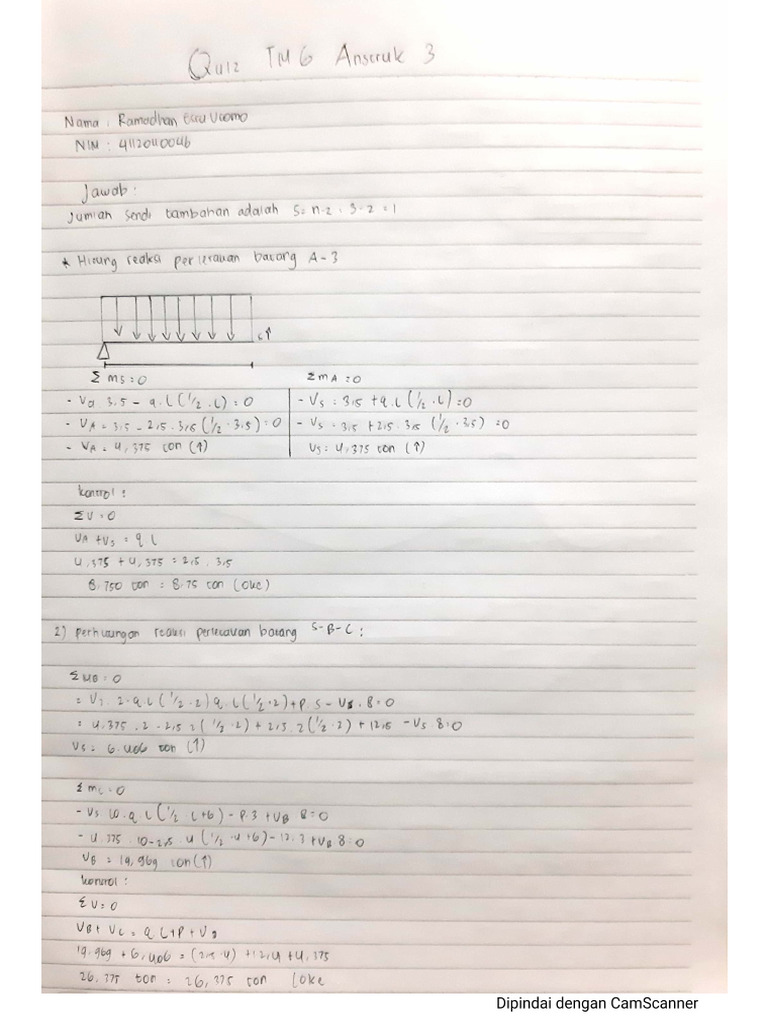 Quiz TM6 Anstruk 3
Nama : Ramadhan Utomo
NIM : 41120110046
Jawab :
Jumlah sendi tambahan adalah S= n-2 , 3-2 = 1
* Hitung reaksi perletakan batang A-3
Σ MS = 0
- Va 3,5 - q.L (1/2 . L) = 0
- VA = 3,5 - 2,5 . 3,5 (1/2 . 3,5) = 0
- VA = 4,375 ton (↑)
Σ MA = 0
- Vs : 3,5 + q.L (1/2 . L) = 0
- Vs : 3,5 + 2,5 . 3,5 (1/2 . 3,5) = 0
Vs : 4,375 ton (↑)
Kontrol :
ΣV = 0
VA + Vs = q L
4,375 + 4,375 = 2,5 . 3,5
8,750 ton = 8,75 ton (oke)
2) perhitungan reaksi perletakan batang S-B-C :
Σ MB = 0
= 4,375 . 2 - 2,5 2 (1/2 . 2) + 2,5 . 2 (1/2 . 2) + 12,5 - Vs 8 = 0
Vs = 6.406 ton (↑)
Σ MC = 0
- Vs 10 . q . L (1/2 L + 6) - P . 3 + VB 8 = 0
- 4,375 . 10 - 2,5 . 4 (1/2 . 4 + 6) - 12 . 3 + VB 8 = 0
VB = 19,969 ton (↑)
kontrol :
ΣV = 0
VB + VC = q L + P + Vs
19,969 + 6,406 = (2,5 . 4) + 12,4 + 4,375
26,375 ton = 26,375 ton (oke
Dipindai dengan CamScanner